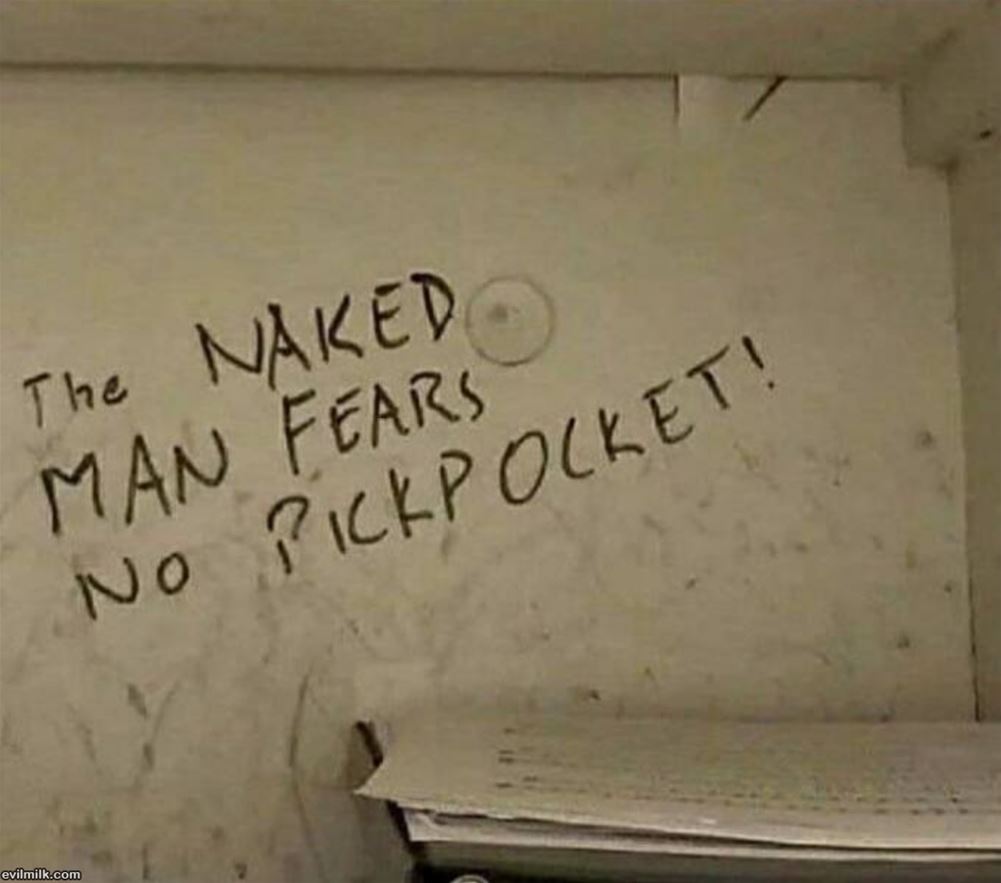 The NAKED
MAN FEARS
NO PICKPOCKET!
evilmilk.com